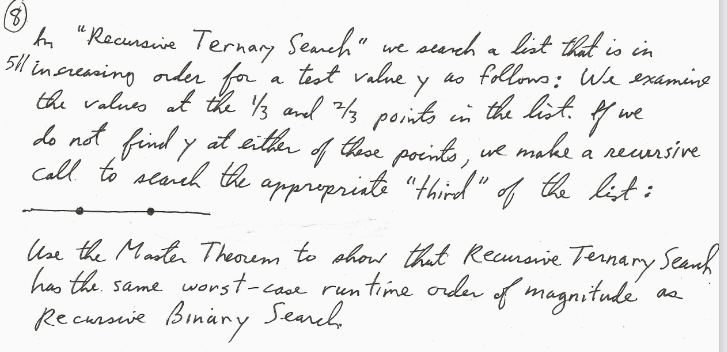 8
In "Recursive Ternary Search" we search a list that is in
511 increasing order for a test value y as follows: We examine
the values at the 1/3 and 2/3 points in the list. If we
do not find y at either of these points, we make a recursive
call to search the appropriate "third" of the list:
Use the Master Theorem to show that Recursive Ternary Search
has the same worst-case runtime order of magnitude as
Recursive Binary Search.